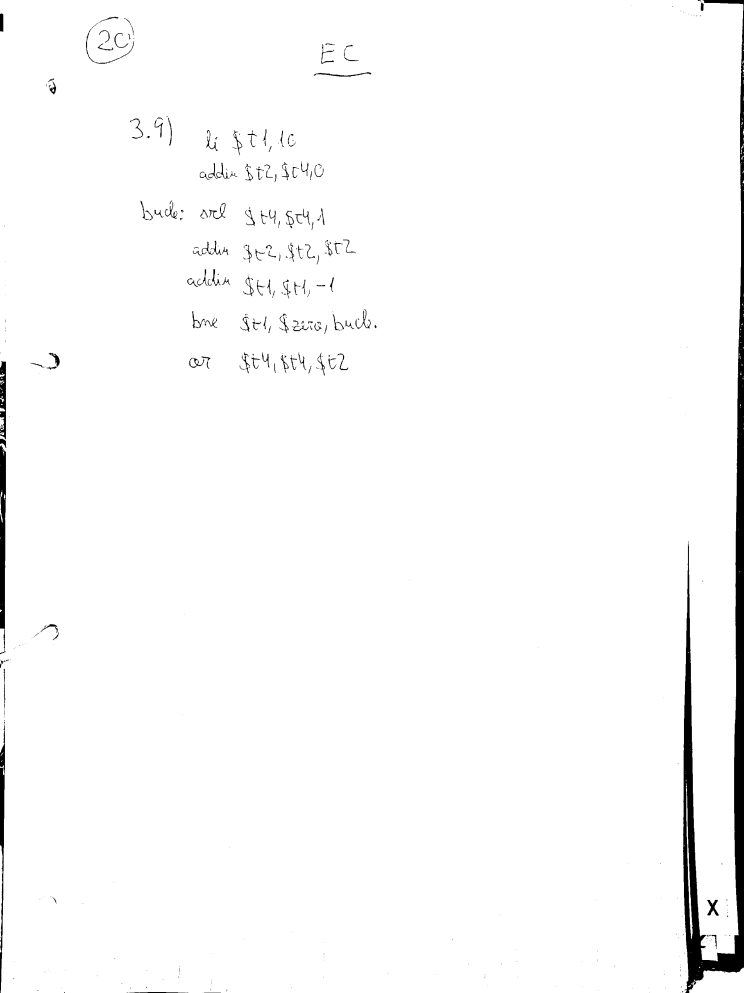 20
EC
3.9) li $t1, 10
addiu $t2, $t4, 0
bucle: srl $t4, $t4, 1
addu $t2, $t2, $t2
addiu $t1, $t1, -1
bne $t1, $zero, bucle.
or $t4, $t4, $t2
X